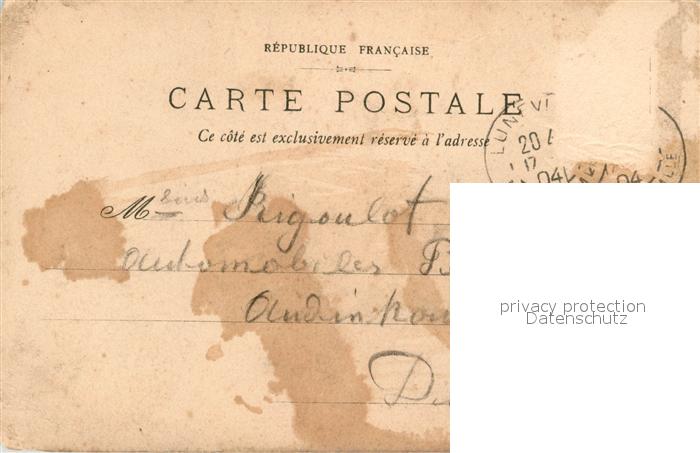 RÉPUBLIQUE FRANÇAISE
CARTE POSTALE
Ce côté est exclusivement réservé à l'adresse
LUNEVI
20
17
04
04
ILLE
M Rigoulot
Automobiles
Audinkou
Di
privacy protection
Datenschutz